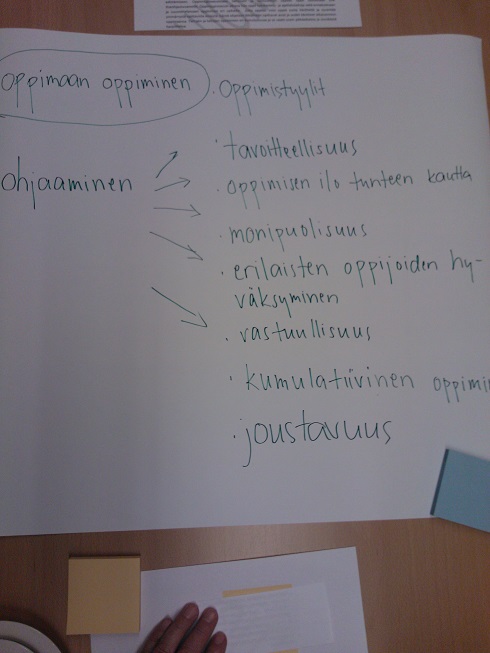 oppimaan oppiminen
· Oppimistyylit
ohjaaminen
· tavoitteellisuus
· oppimisen ilo tunteen kautta
· monipuolisuus
· erilaisten oppijoiden hy-
väksyminen
· vastuullisuus
· kumulatiivinen oppimi
· joustavuus